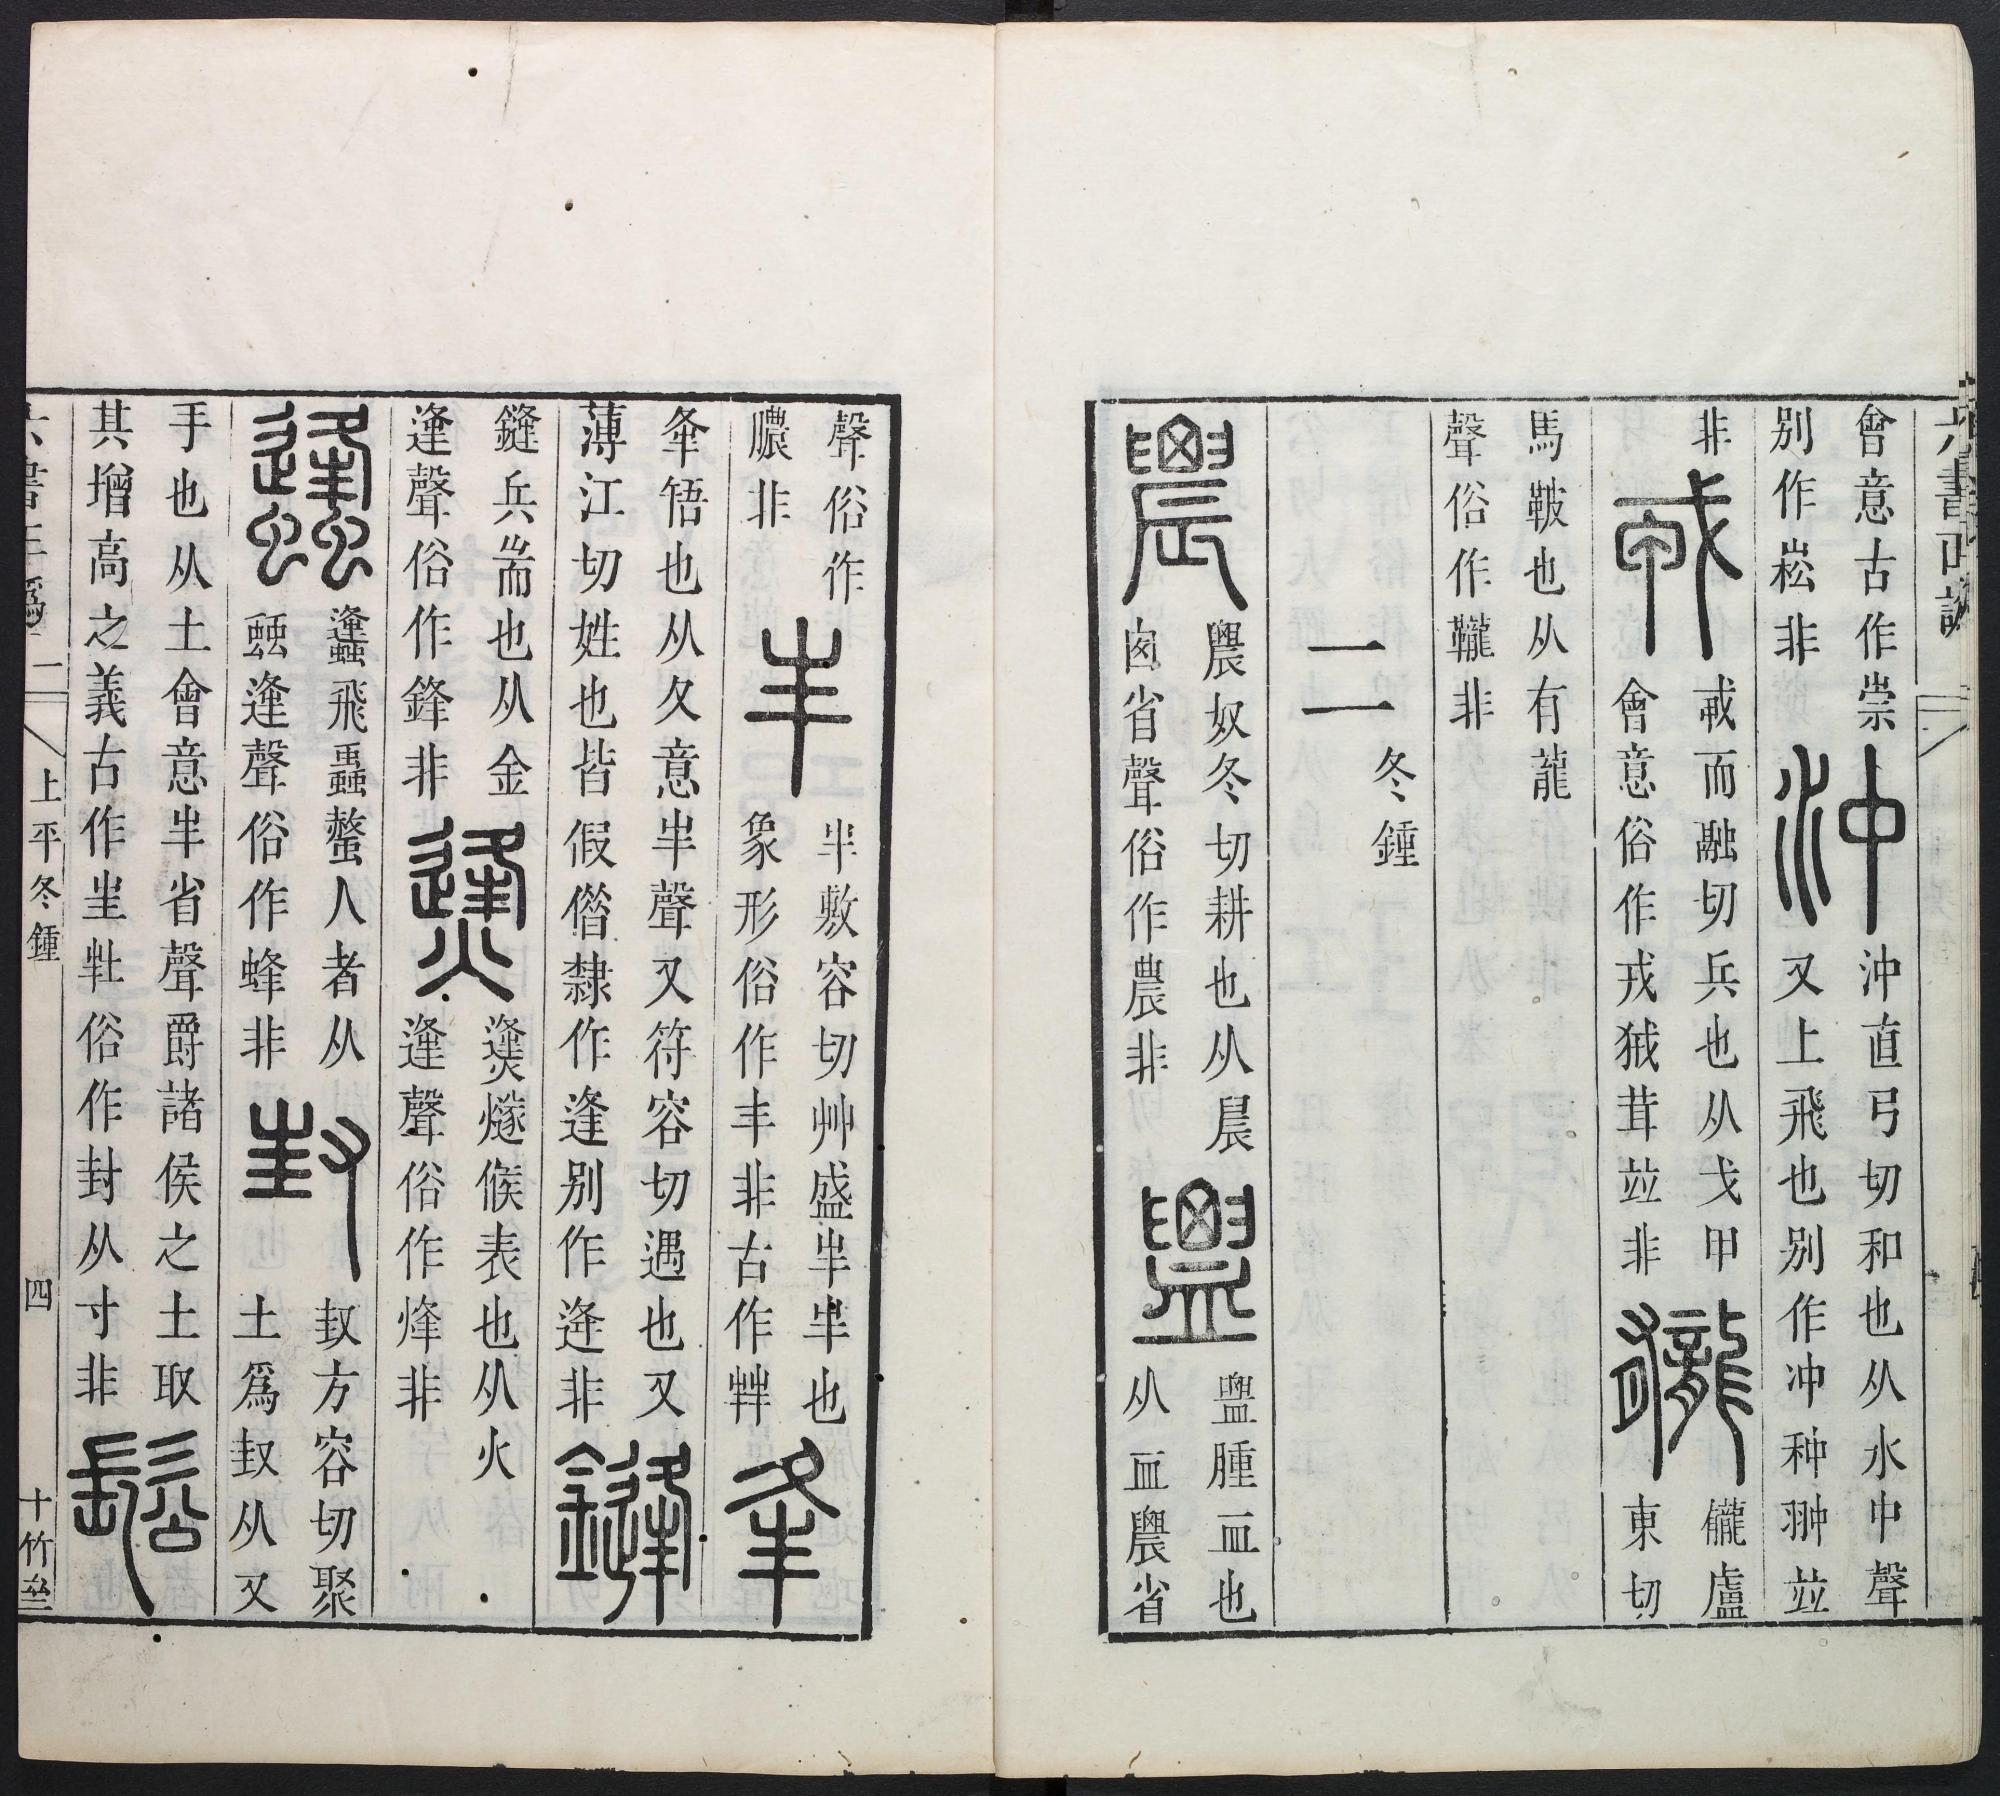 會意古作崇
沖
沖直弓切和也从水中聲
別作崧非
又上飛也別作冲种翀竝
非
戎而融切兵也从戈甲
會意俗作戎狨茸竝非
盧
東切
馬鞁也从有龍
聲俗作鞴非
二
冬鍾
農奴冬切耕也从晨
囟省聲俗作農非
腫血也
从血農省
聲俗作
膿非
丰
丰敷容切艸盛丰丰也
象形俗作丰非古作
夆
夆啎也从夂意丰聲又符容切遇也又
薄江切姓也皆假借隸作逢別作逄非
鏠
鏠兵耑也从金
逢聲俗作鋒非
㷭
㷭燧候表也从火
逢聲俗作烽非
飛蟲螫人者从
䖵逢聲俗作蜂非
封
方容切聚
土爲封从又
手也从土會意丰省聲爵諸侯之土取
其增高之義古作俗作封从寸非
鬆
上平冬鍾
四
十竹